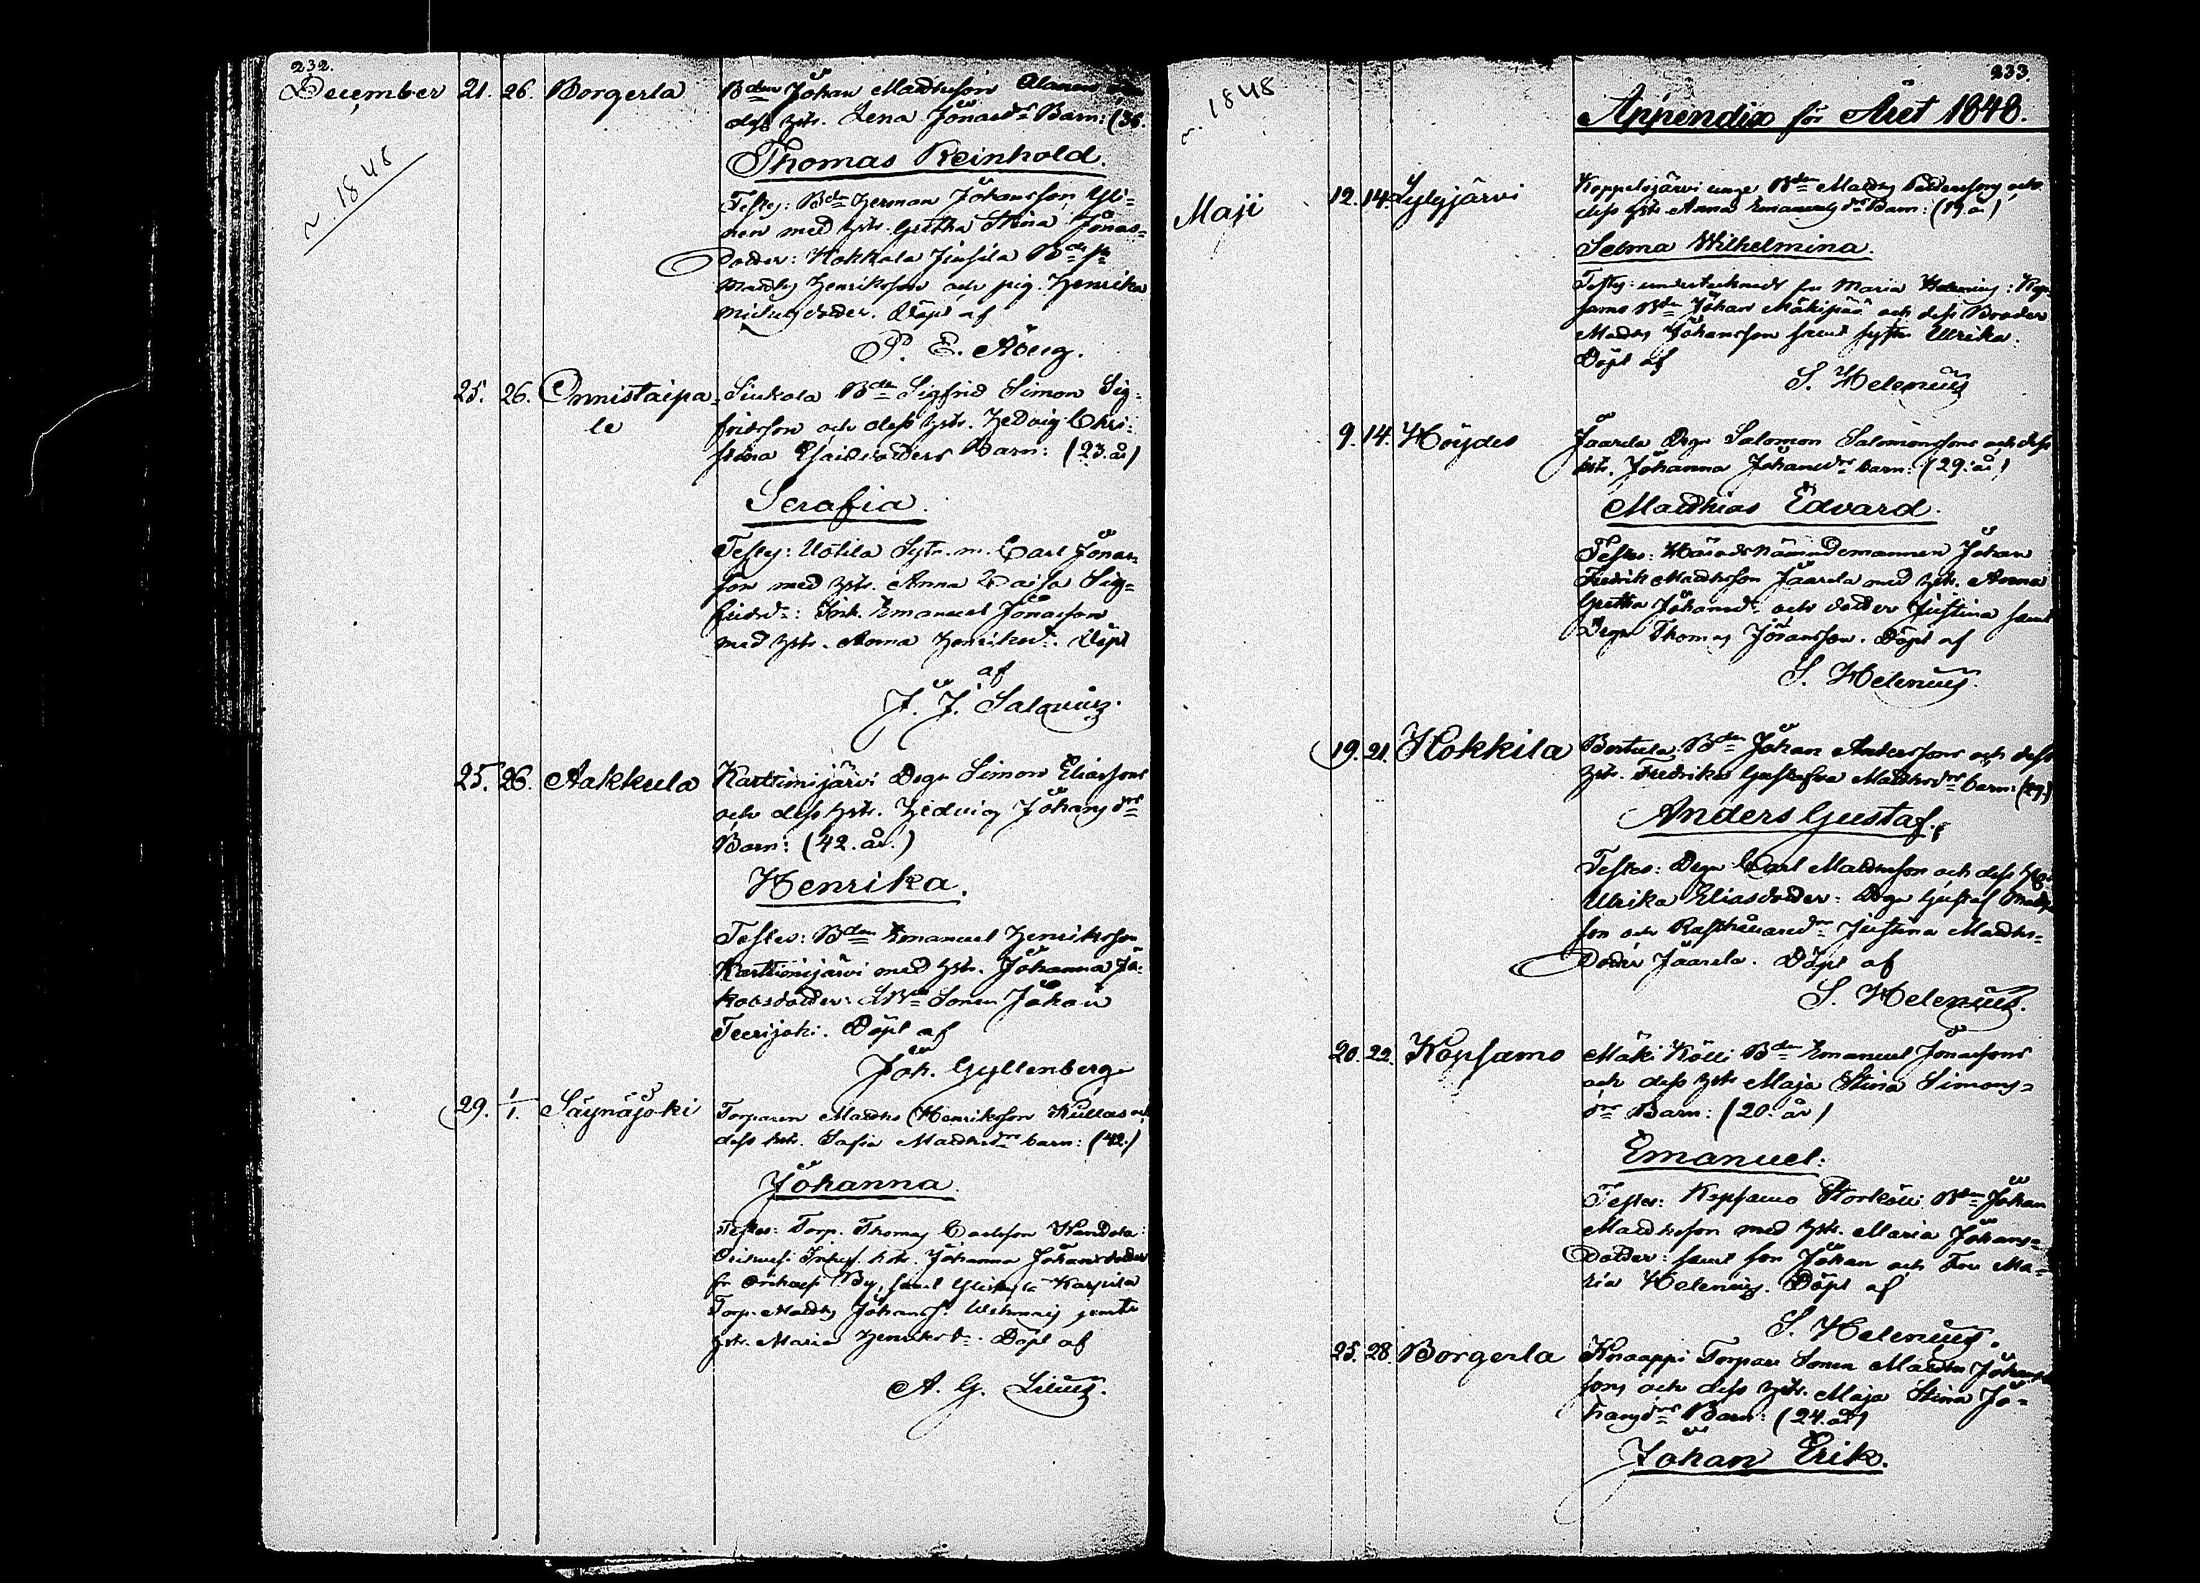 232.
December 21. 26. Borgerla Bden Johan Matthsson Alanen och
dess hstr. Lena Jonasdr Barn: (36.
n. 1848
Thomas Reinhold.
Testes: Bden Herman Johansson Yli-
nen med hstr. Gretha Stina Jonas-
dotter: Hokkala Bds
Matths Henriksson och pig. Henrika
Michelsdotter. Döpt af
P. E. Åberg.
25. 26. Onnistaipa- Siukola Bden Sigfrid Simon Sig-
le fridsson och dess hstr. Hedvig Chri-
stina Esaiædotters Barn: (23. år)
Serafia.
Testes: Uotila Carl Jonas-
son med hstr. Anna Caisa Sig-
fridsdr: Inh. Emanuel Jonasson
med hstr. Anna Henriksdr. Döpt
af
J. J. Salovius.
25. 26. Aakkula Karttimijärvi Drgn Simon Eliassons
och dess hstr. Hedvig Johansdrs
Barn: (42. år.)
Henrika.
Testes: Bden Emanuel Henriksson
Karttimijärvi med hstr. Johanna Ja-
kobsdotter: Sonen Johan
Teerijoki. Döpt af
Joh. Gyllenberg
29. 1/1. Säynäjoki Torparen Matths Henriksson Kullas och
dess hstr. Sofia Matthsdrs barn: (42.)
Johanna.
Testes: Torp. Thomas Carlsson Handola:
Inhys. hstr. Johanna Johansdotter
fr By, samt Karpila
Torp. Matths Johanss. jemte
hstr. Maria Henriksdr. Döpt af
A. G. Lilius.
233.
n. 1848
Appendix för Året 1848.
Maji 12. 14. Lylyjärvi Koppelojärvi unge Bden Matths och
dess hstr Anna Emanuelsdrs Barn: (19. år)
Selma Wilhelmina.
Testes: undertecknads fru Maria Helenius: Kop-
samo Bden Johan Mäkipää och dess Broder
Matths Johansson samt syster Ulrika.
Döpt af
S. Helenius
9. 14. Höydes Jaarla Drgn Salomon Salomonssons och dess
hstr. Johanna Johansdrs barn: (29. år)
Matthias Edvard.
Testes: Häradsnämndemannen Johan
Fredrik Matthsson Jaarla med hstr. Anna
Gretha Johansdr och dotter Justina samt
Drgn Thomas Johansson. Döpt af
S. Helenius.
19. 21. Hokkila Bertula Bden Johan Anderssons och dess
hstr. Fredrika Gustafva Matthsdrs barn: (29)
Anders Gustaf.
Testes: Drgn Carl Matthsson och dess hstr
Ulrika Eliasdotter: Drgn Gustaf Matths-
son och Justina Matths-
dotter Jaarla. Döpt af
S. Helenius.
20. 22. Kopsamo Mäki Kölli Bden Emanuel Jonassons
och dess hstr Maja Stina Simons-
drs Barn: (20. år)
Emanuel:
Testes: Kopsamo Storkölli Bden Johan
Matthsson med hstr. Maria Johans-
dotter: samt son Johan och Fru Ma-
ria Helenius. Döpt af
S. Helenius.
25. 28. Borgerla Knaappi Torpare Sonen Matths Johans-
sons och dess hstr. Maja Stina Jo-
hansdrs Barn: (24. år)
Johan Erik.